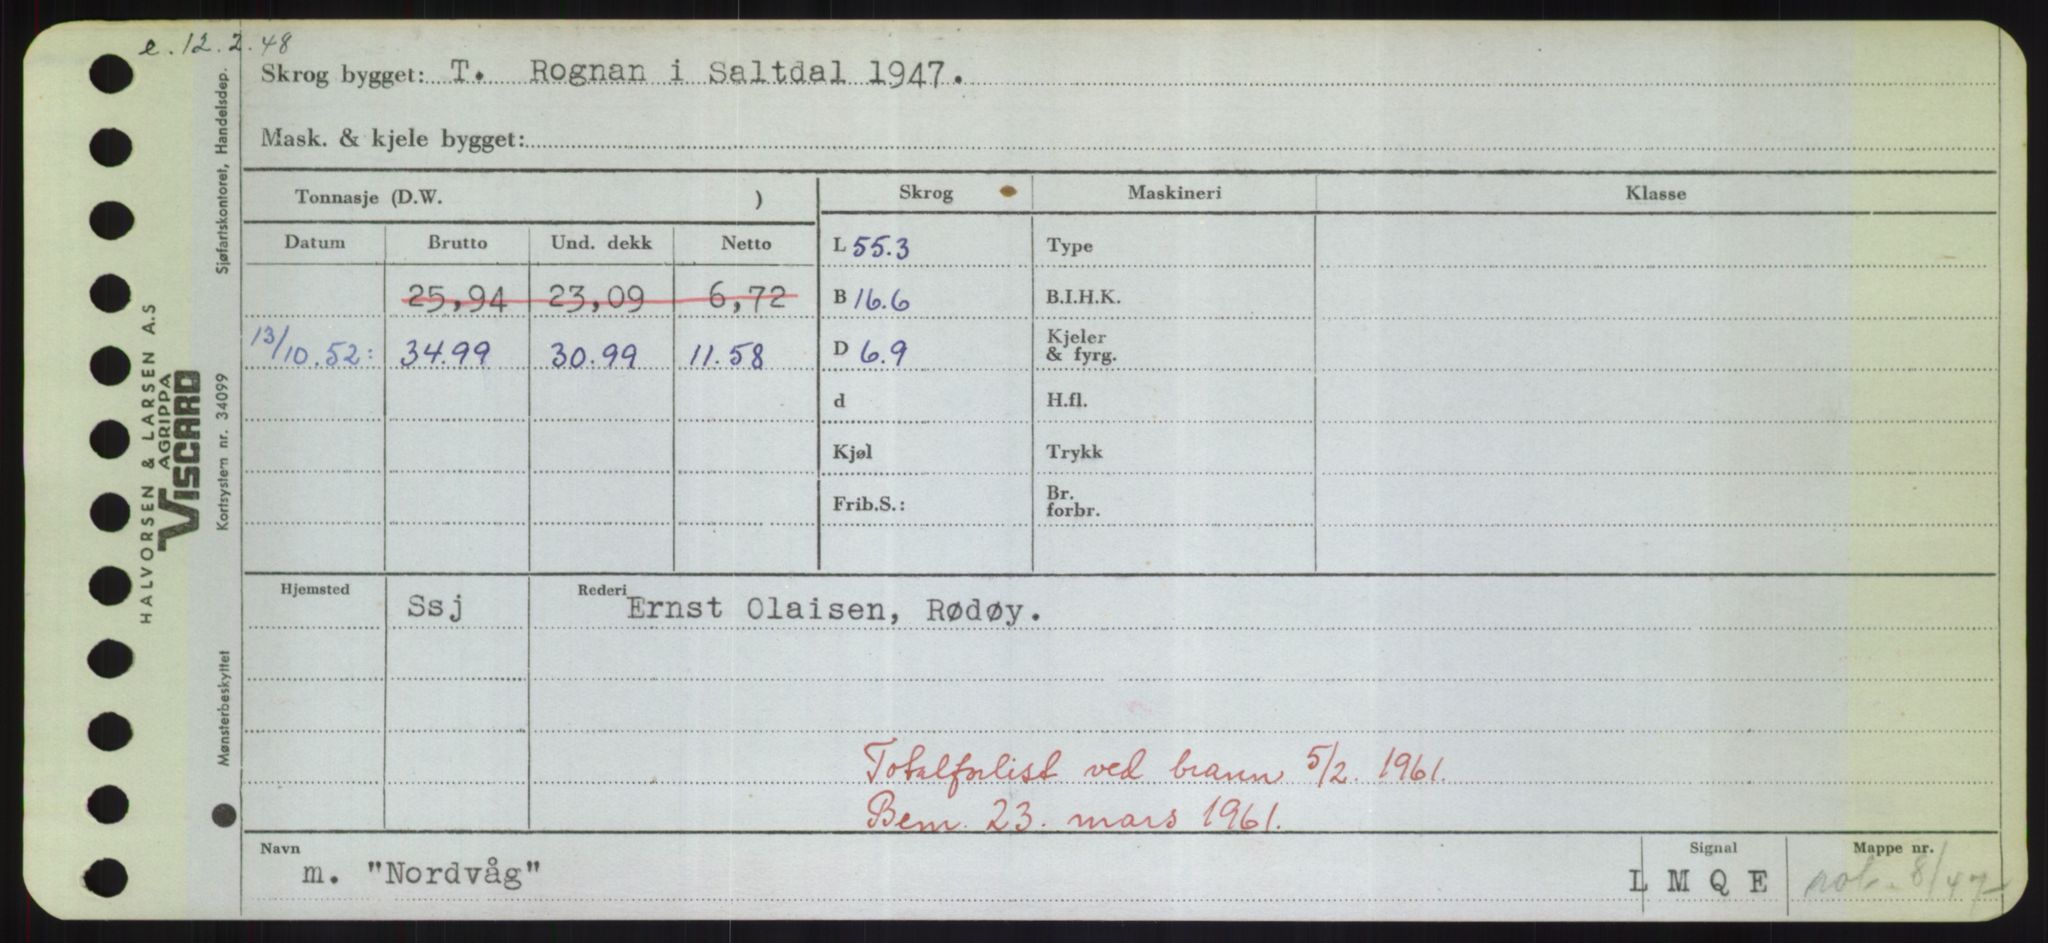 e. 12.2.48
Skrog bygget: T. Rognan i Saltdal 1947.
Mask. & kjele bygget:
Tonnasje (D.W. )
Skrog Maskineri Klasse
Datum Brutto Und. dekk Netto
L 55.3 Type
25,94 23,09 6,72
B 16.6 B.I.H.K.
13/10.52: 34.99 30.99 11.58
D 6.9 Kjeler & fyrg.
d H.fl.
Kjøl Trykk
Frib.S.: Br. forbr.
Hjemsted Ssj Rederi Ernst Olaisen, Rødøy.
Totalforlist ved brann 5/2. 1961.
Bem. 23. mars 1961.
Navn m. "Nordvåg"
Signal L M Q E
Mappe nr. 8/47
HALVORSEN & LARSEN A.S
AGRIPPA
VISCARD
Sjøfartskontoret, Handelsdep.
Kortsystem nr. 34099
Mønsterbeskyttet